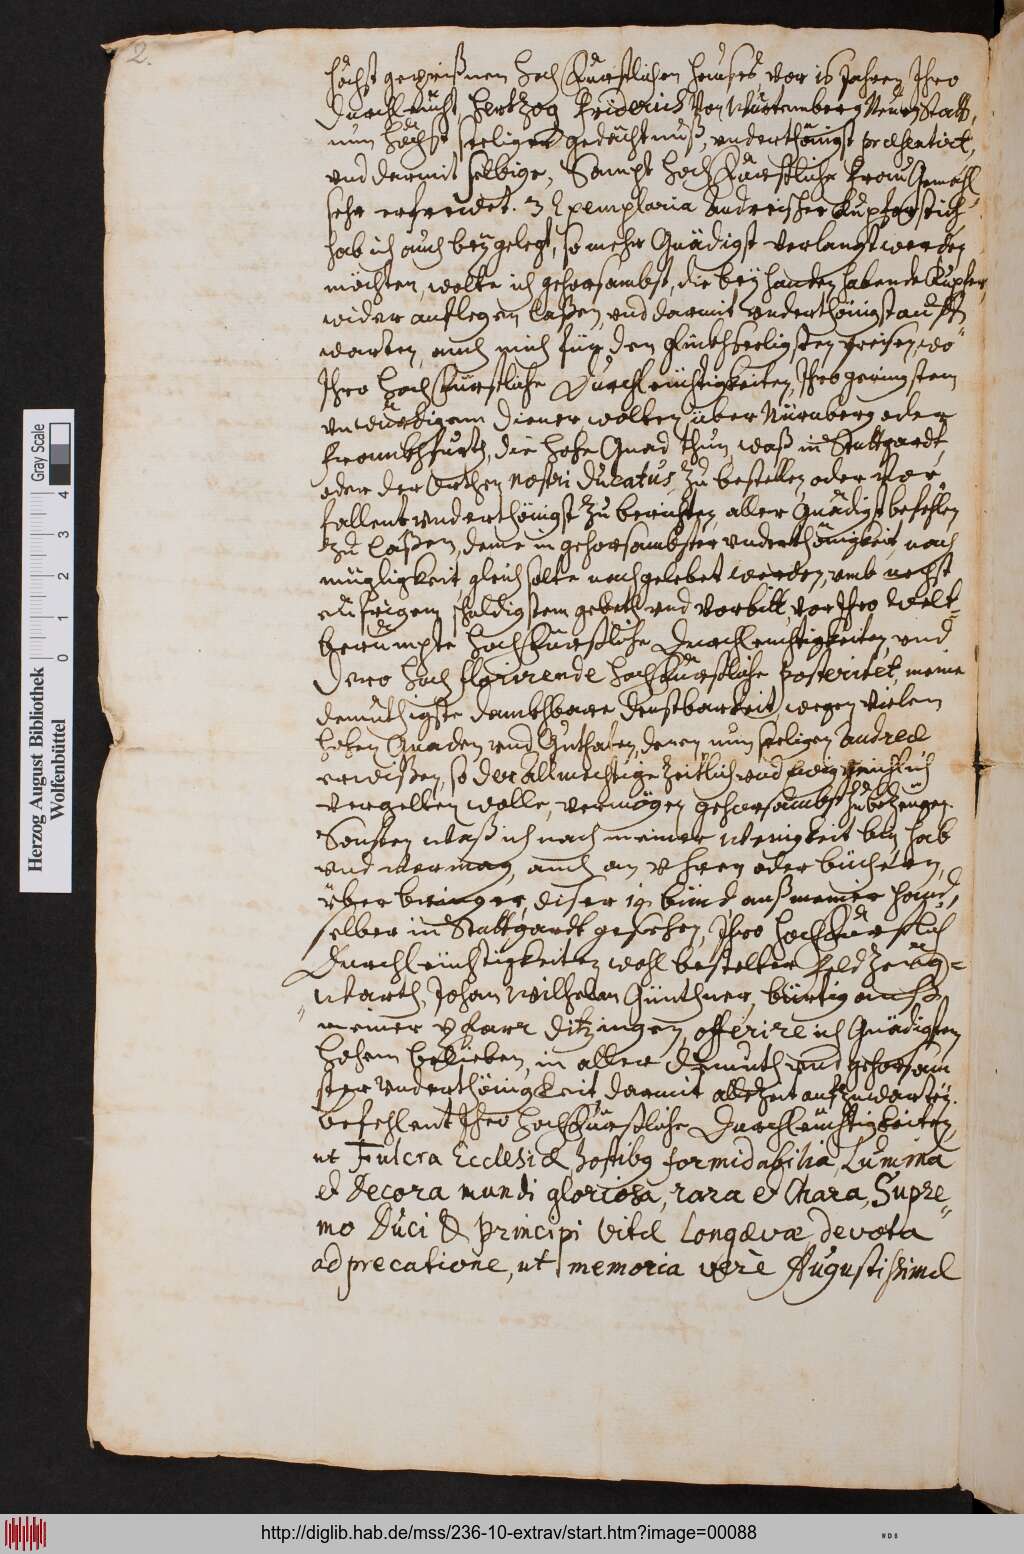 2.
höchst gepreißnen Hoch Fürstlichen Haußes vor 16 Jahren, Ihro
Durchleücht Hertzog Friderich von Würtemberg Neuwstatt,
nun höchst seeliger gedächtnuß, underthönigst præsentirt,
und darmit selbige, Sampt Hoch Fürstliche Fraw Gemahl
sehr erfreidet. 3 Exemplaria Andreischer Kupferstich
hab ich auch beygelegt, so mehr Gnädigst verlangt werden
möchten, wolte ich gehorsambst, die bey handen habende Kupfer,
wider auflegen laßen, und darmit underthönigst auff
warten, auch mich für den glückhseeligsten preisen, wo
Ihro HochFürstliche Durchleüchtigkeiten, Ihro geringsten
unwürdigem Diener wolten über Nürnberg oder
Franckhfurth, die hohe Gnad thun, waß in Stuttgardt,
oder der Orthen nostri Ducatus, zu bestellen, oder vor
fallent underthönigst zu berichten, aller Gnädigst befehlen
zu laßen, deme in gehorsambster underthönigkeit, nach
mügligkeit gleich solte nachgelebet werden, umb nechst
eüfrigem schuldigstem gebett und vorbitt, vor Ihro Welt-
berümpte HochFürstliche Durchleuchtigkeiten, und
Dero Hoch florirende HochFürstliche Posteritet, meine
demüthigste danckhbare dienstbarkeit, wegen vielen
hohen Gnaden und Gutthaten, denen nun seeligen Andreæ
erwißen, so der Allmechtige zeitlich und ewig reichlich
vergelten wolle, vermögen gehorsambst zu bezeügen.
Sonsten waß ich nach meiner wenigkeit bin, hab
und vermag, auch an uhren oder büchern,
überbringer, diser ig. bind auß meiner hand,
selber in Stuttgardt gesehen, Ihro HochFürstlich
Durchleüchtigkeiten wohl bestelter Feldzeüg-
warth, Johan Wilhelm Günthner, bürtig auß
meiner Pfarr Ditzingen, offerire ich Gnädigsten
hohem belieben, in aller demuth und gehorsam
ster underthönigkeit darmit allezeit aufzuwarten.
befehlent Ihro HochFürstliche Durchleüchtigkeiten,
ut Fulcra Ecclesiæ hostibq formidabilia, Lumina
et decora mundi gloriosa, rara et Chara, Supre-
mo Duci & Principi Vitæ Longævæ, devota
adprecatione, ut memoria verè Augustissimæ
Herzog August Bibliothek
Wolfenbüttel
0 1 2 3 4
Gray Scale
http://diglib.hab.de/mss/236-10-extrav/start.htm?image=00088